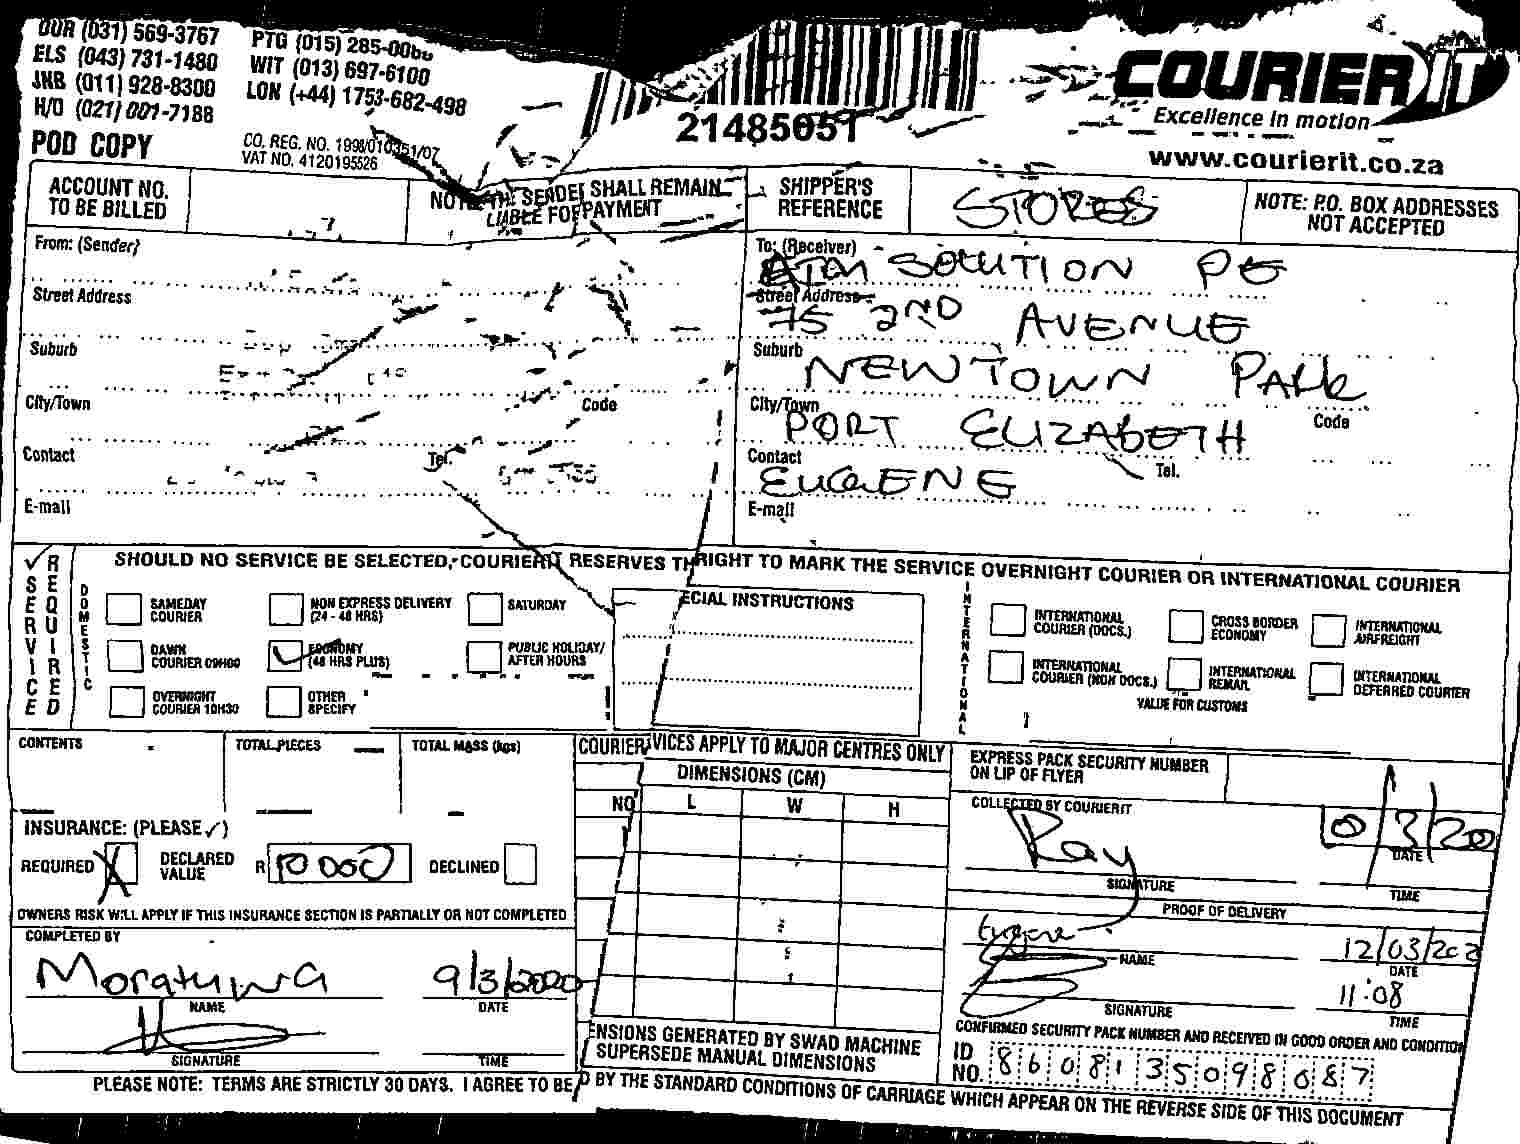 DUR (031) 569-3767
ELS (043) 731-1480
JNB (011) 928-8300
H/O (021) 001-7188
PTG (015) 285-00
WIT (013) 697-6100
LON (+44) 1753-682-498
POD COPY
CO. REG. NO. 1998/010351/07
VAT NO. 4120195526
21485651
COURIER IT
Excellence in motion
www.courierit.co.za
ACCOUNT NO.
TO BE BILLED
NOTE: THE SENDER SHALL REMAIN
LIABLE FOR PAYMENT
SHIPPER'S
REFERENCE
STORES
NOTE: P.O. BOX ADDRESSES
NOT ACCEPTED
From: (Sender)
Street Address
Suburb
City/Town
Code
Contact
Tel.
E-mail
To: (Receiver)
ATM SOLUTION PE
Street Address
75 2ND AVENUE
Suburb
NEWTOWN PARK
City/Town
Code
PORT ELIZABETH
Contact
Tel.
EUGENE
E-mail
✓ SERVICE REQUIRED
SHOULD NO SERVICE BE SELECTED, COURIERIT RESERVES TH RIGHT TO MARK THE SERVICE OVERNIGHT COURIER OR INTERNATIONAL COURIER
DOMESTIC
SAMEDAY
COURIER
NON EXPRESS DELIVERY
(24 - 48 HRS)
SATURDAY
DAWN
COURIER 09H00
✓ ECONOMY
(48 HRS PLUS)
PUBLIC HOLIDAY/
AFTER HOURS
OVERNIGHT
COURIER 10H30
OTHER
SPECIFY
ECIAL INSTRUCTIONS
INTERNATIONAL
INTERNATIONAL
COURIER (DOCS.)
CROSS BORDER
ECONOMY
INTERNATIONAL
AIRFREIGHT
INTERNATIONAL
COURIER (NON DOCS.)
INTERNATIONAL
REMAIL
INTERNATIONAL
DEFERRED COURIER
VALUE FOR CUSTOMS
CONTENTS
TOTAL PIECES
TOTAL MASS (kgs)
COURIER VICES APPLY TO MAJOR CENTRES ONLY
DIMENSIONS (CM)
NO L W H
EXPRESS PACK SECURITY NUMBER
ON LIP OF FLYER
INSURANCE: (PLEASE ✓)
REQUIRED X
DECLARED
VALUE
R 10 000
DECLINED
OWNERS RISK WILL APPLY IF THIS INSURANCE SECTION IS PARTIALLY OR NOT COMPLETED
COLLECTED BY COURIERIT
Ray
10/3/20
DATE
SIGNATURE
TIME
PROOF OF DELIVERY
Eugene
NAME
12/03/202
DATE
11:08
SIGNATURE
TIME
COMPLETED BY
Moratuwa
NAME
9/3/2020
DATE
SIGNATURE
TIME
ENSIONS GENERATED BY SWAD MACHINE
SUPERSEDE MANUAL DIMENSIONS
CONFIRMED SECURITY PACK NUMBER AND RECEIVED IN GOOD ORDER AND CONDITION
ID
NO. 8608135098087
PLEASE NOTE: TERMS ARE STRICTLY 30 DAYS. I AGREE TO BE D BY THE STANDARD CONDITIONS OF CARRIAGE WHICH APPEAR ON THE REVERSE SIDE OF THIS DOCUMENT